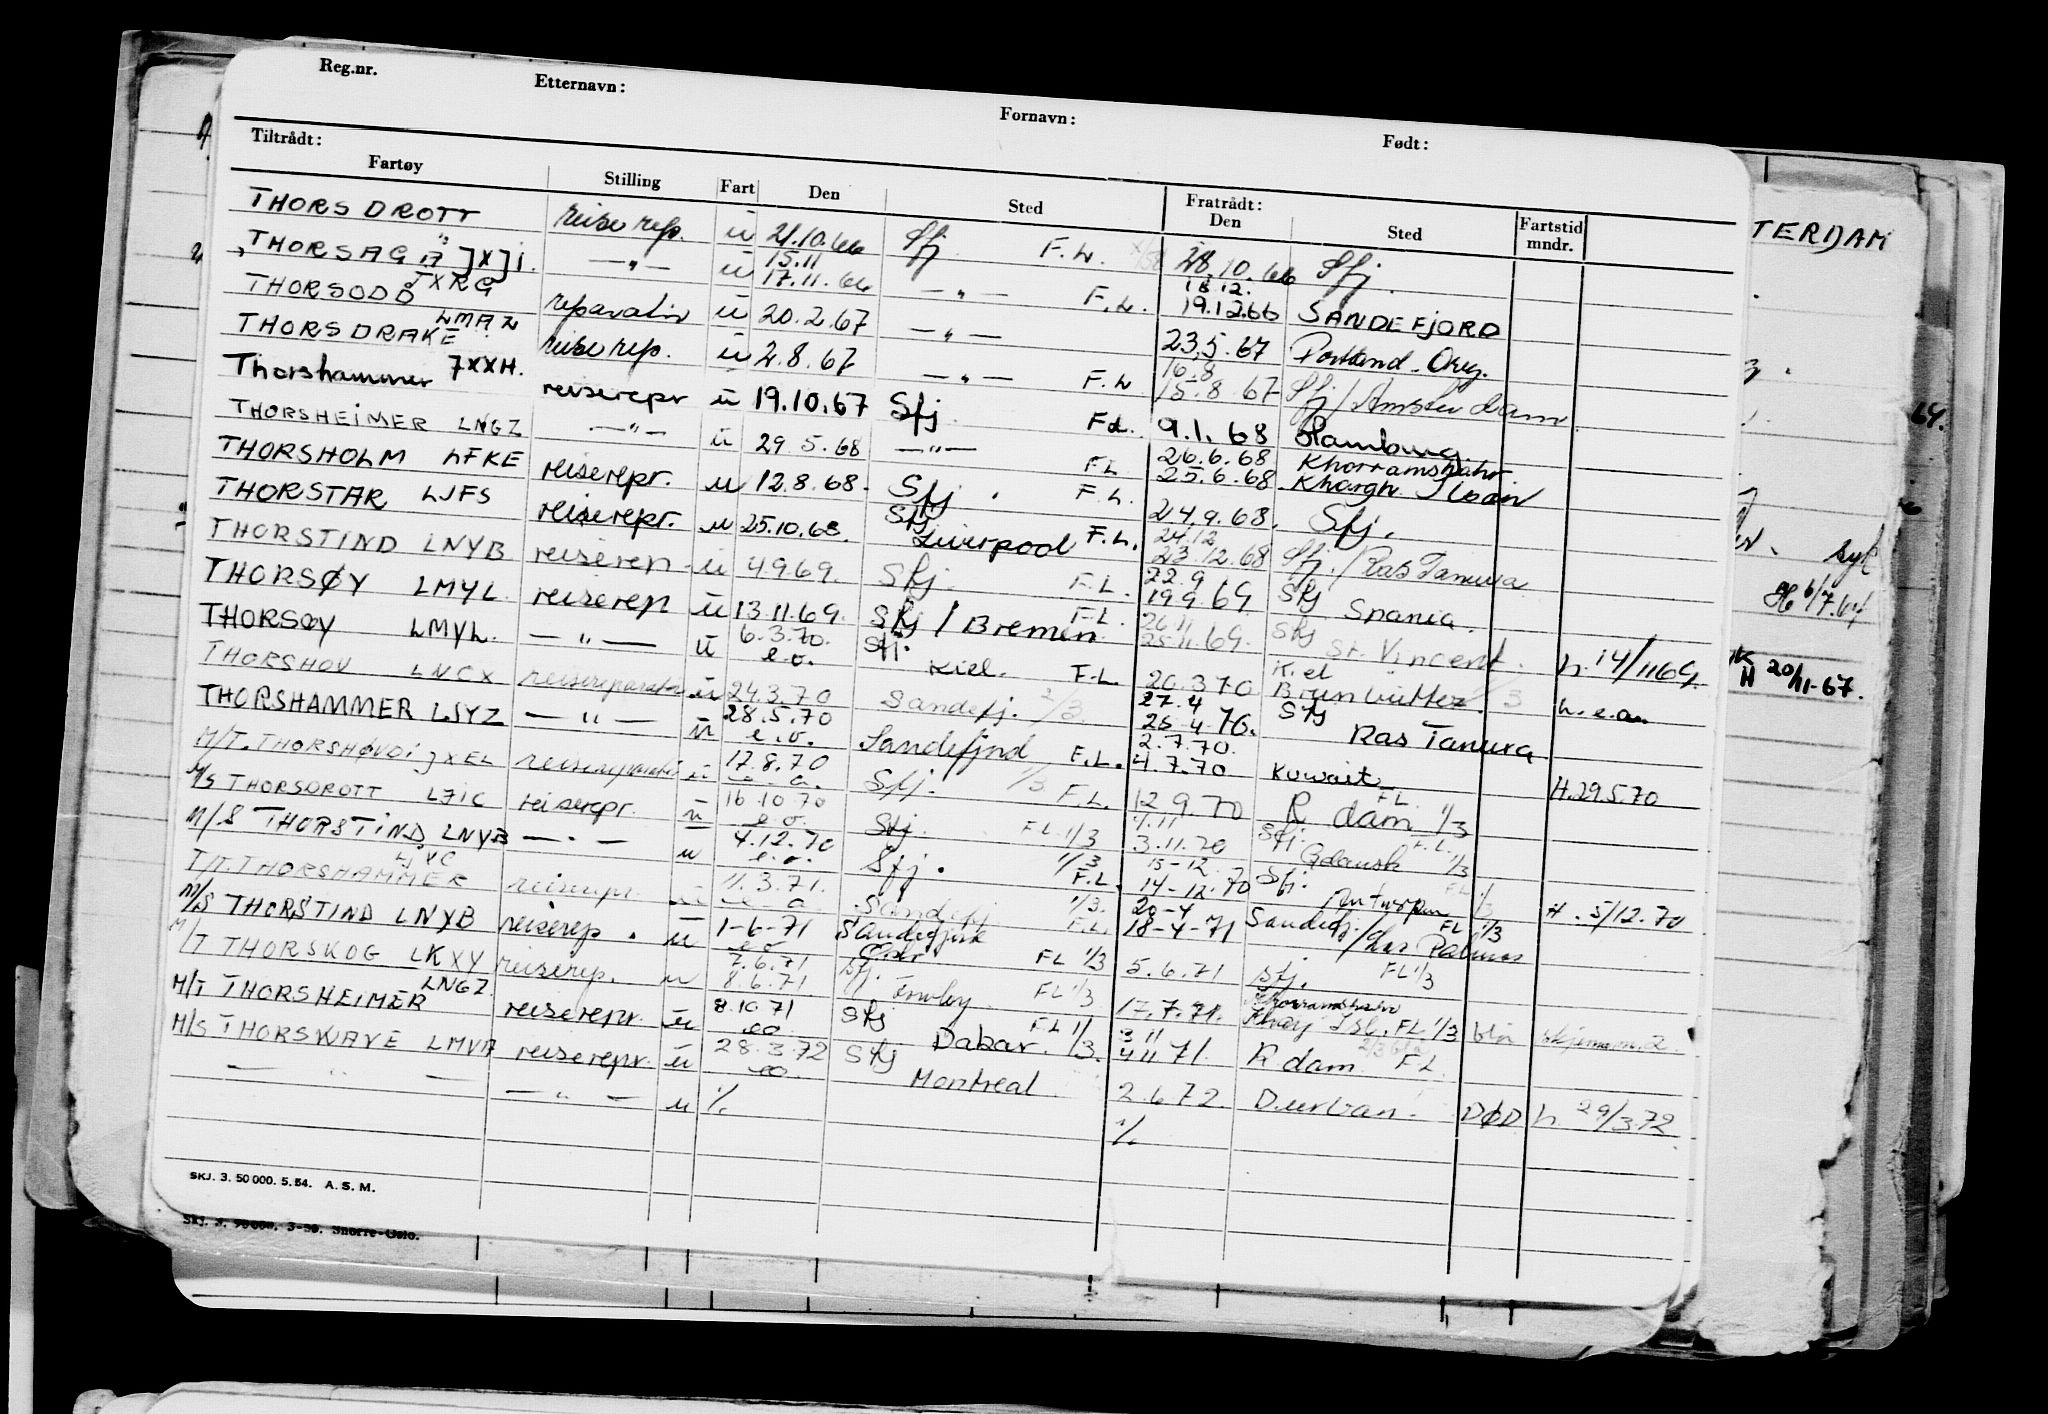 Reg.nr. Etternavn: Fornavn: Født:
Tiltrådt: Fratrådt:
Fartøy Stilling Fart Den Sted Den Sted Fartstid mndr.
THORSDROTT reise rep. u 21.10.66 Sfj F.L. 28.10.66 Sfj.
THORSAG JXJI. —"— u 15.11 17.11.66 —"— F.L. 18.12. 19.12 66 SANDEFJORD
THORSODD JXRG reparatør u 20.2.67 —"— 23.5.67 Portland - Oreg.
THORSDRAKE LMAN reise rep. u 2.8.67 —"— F.L 16.8 15.8.67 Sfj / Amsterdam
Thorshammer JXXH. reiserepr u 19.10.67 Sfj Fd. 9.1.68 Hamburg
THORSHEIMER LNGZ —"— u 29.5.68 —"— FL 26.6.68 25.6.68 Khorramshahr Khargh Island
THORSHOLM LFKE reiserepr. u 12.8.68. Sfj. F.L. 24.9.68. Sfj.
THORSTAR LJFS reiserepr. u 25.10.68. Sfj Liverpool F.L. 24.12 23.12.68 Sfj. / Ras Tanura
THORSTIND LNYB reiserep. u 4.9.69. Sfj. F.L. 22.9 19.9.69 Sfj Spania.
THORSØY LMYL. reiserep u 13.11.69. Sfj / Bremen F.L. 26.11 25.11.69. Sfj St. Vincent. h. 14/11 69.
THORSØY LMYL. —"— u 6.3.70. e.o. Sfj. Kiel. F.L. 20.3.70 Kiel Brunbüttel h. e.a.
THORSHOV LNCX reisereparatør u 24.3.70 Sandefj. 2/3. 27.4 25-4.70. Sfj Ras Tanura
THORSHAMMER LJYZ —"— u 28.5.70 e.o. Sandefjord F.L. 2.7.70. 4.7.70 Kuwait H.29.5.70
M/T. THORSHØVDI JXEL reisereparatør u 17.8.70 Sfj. 1/3 F.L. 12.9.70 R dam FL 1/3
M/S THORSDROTT LJIC reiserepr. u 16.10.70 e.o. Sfj. FL. 1/3 7.11 3.11.70 Sfj. Gdansk F.L. 1/3
M/S THORSTIND LNYB —"— u 4.12.70 e.o. Sfj. 1/3 F.L. 15-12. 14-12.70 Sfj. Antwerpen FL 1/3 H. 5/12.70
T/T. THORSHAMMER reiserepr. u 11.3.71. Sandefj 1/3. F.L. 20-4 18-4-71 Sandefj. / Las Palmas FL 1/3
M/S THORSTIND LNYB reiserep. u 1-6-71 e.o Sandefjord FL 1/3 5.6.71 Sfj. FL 1/3
M/T THORSKOG LKXY reiserep. u 7.6.71 8.6.71 Sfj. FL 1/3 17.7.71. Khorramshahr Kharg Isl. FL 1/3
M/T THORSHEIMER LNGZ reiserepr. u 8.10.71 eo Sfj Dakar. FL 1/3. 3.11 4.11.71. R dam FL
M/S THORSWAVE LMVA reiserepr. u 28.3.72 eo. Sfj Montreal 2.6.72. Durban. DØD h. 29/3.72
— " — — " — u %. %.
SKJ. 3. 50 000. 5.54. A. S. M.
3-56. Snorre-Oslo.
TERDAM
64.
syk
6/7.64
20/11-67.